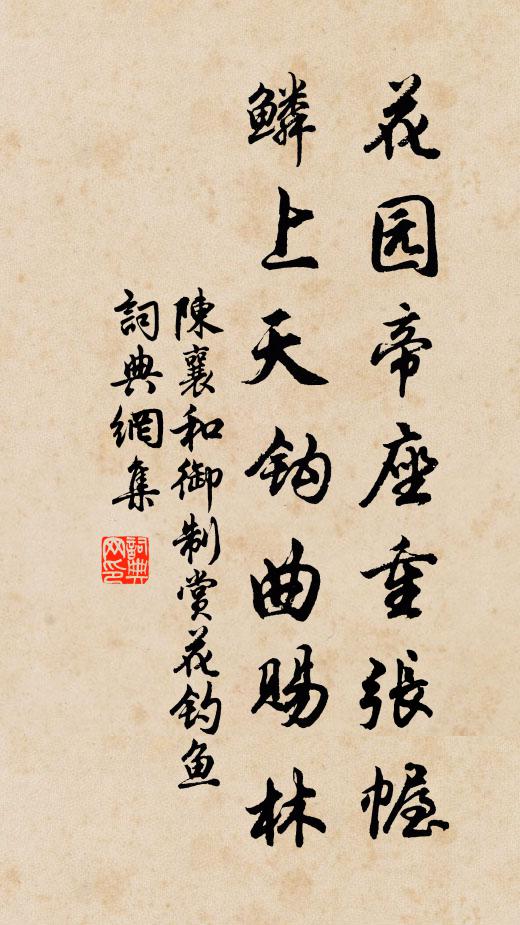 花园帝座重張幄
鱗上天钩曲賜林
陳襄和御制賞花钓鱼
詞典網集
詞典网印